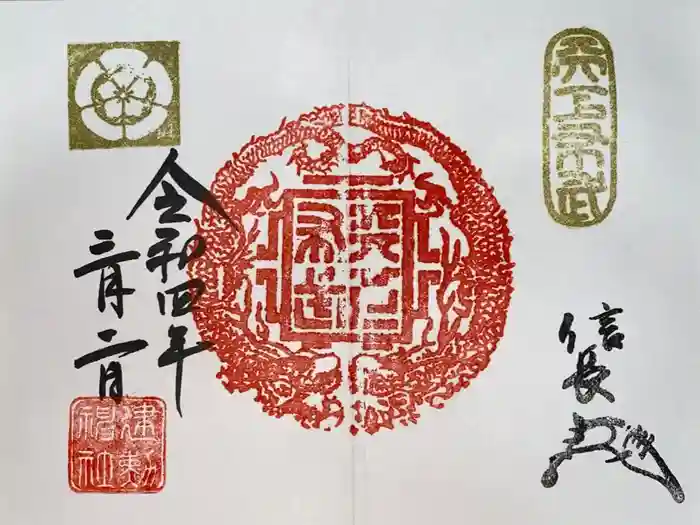 天下布武
信長
天下布武
令和四年
三月二日
建勲
神社